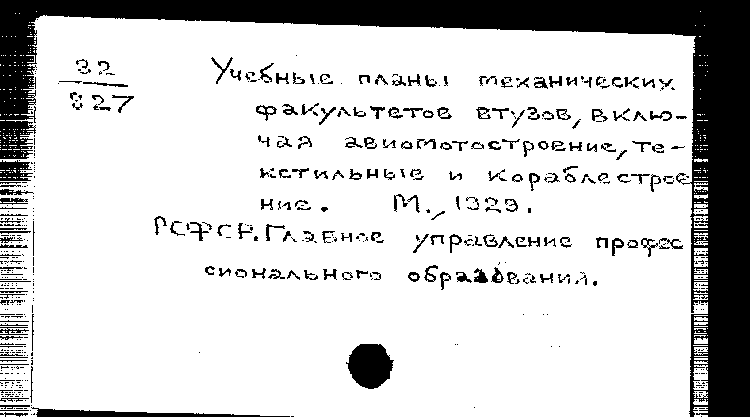 32
827
Учебные планы механических
факультетов втузов, вклю-
чая авиомотостроение, те-
кстильные и кораблестрое
ние. М., 1929.
РСФСР. Главное управление профес
сионального образования.